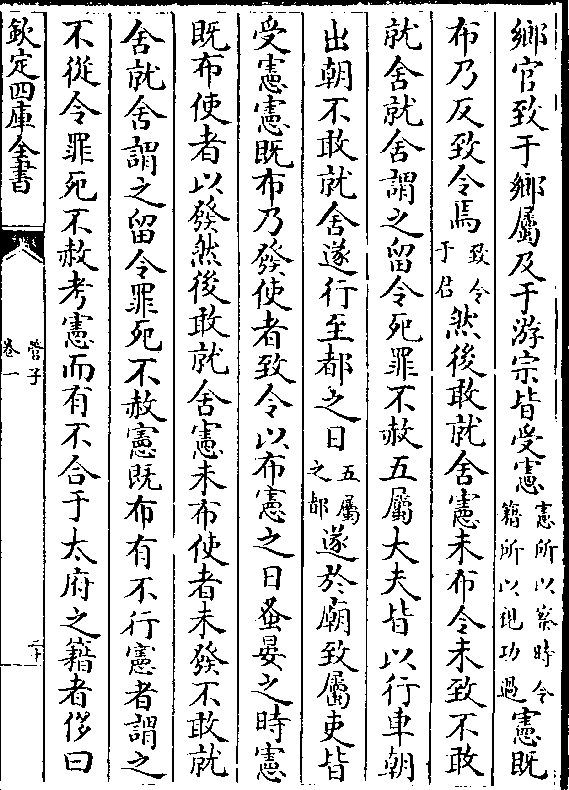 鄉官致于鄉屬及于游宗皆受憲憲所以察時令籍所以視功過憲既
布乃反致令焉致令于君然後敢就舍憲未布令未致不敢
就舍就舍謂之留令死罪不赦五屬大夫皆以行車朝
出朝不敢就舍遂行至都之日五屬之都遂於廟致屬吏皆
受憲憲既布乃發使者致令以布憲之日蚤晏之時憲
既布使者以發然後敢就舍憲未布使者未發不敢就
舍就舍謂之留令罪死不赦憲既布有不行憲者謂之
不從令罪死不赦考憲而有不合于太府之籍者侈曰
欽定四庫全書
管子
卷一
二十